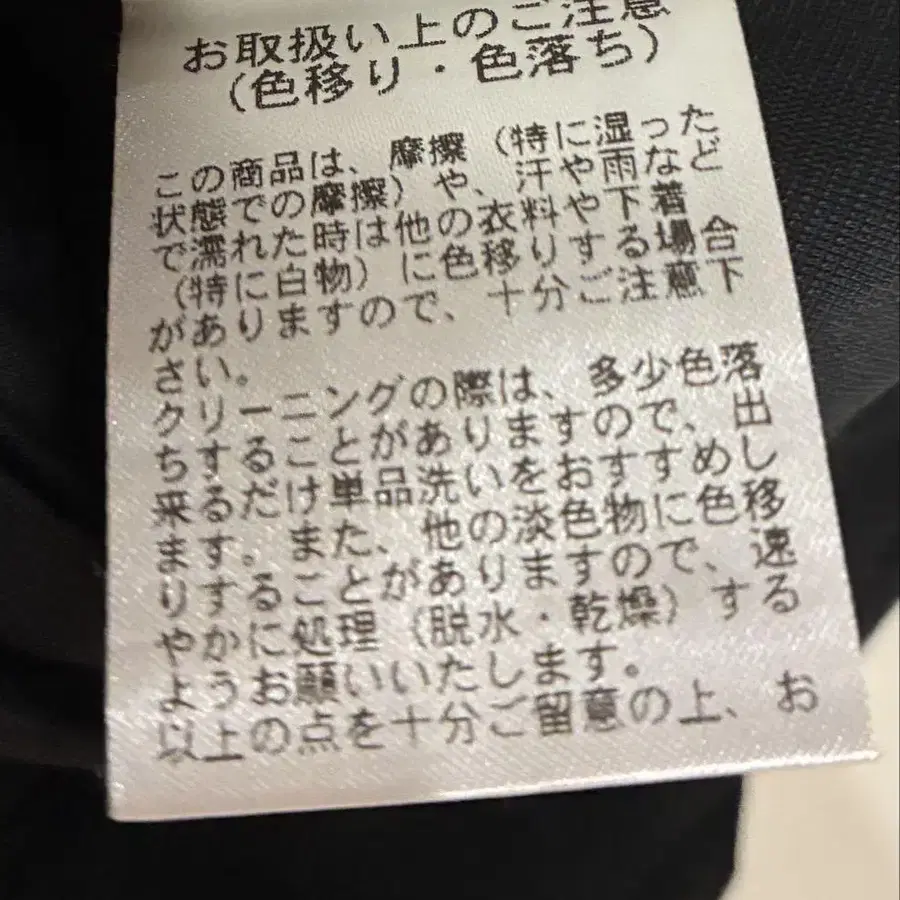 お取扱い上のご注意
（色移り・色落ち）
この商品は、摩擦（特に湿った
状態での摩擦）や、汗や雨など
で濡れた時は他の衣料や下着
（特に白物）に色移りする場合
がありますので、十分ご注意下
さい。
クリーニングの際は、多少色落
ちすることがありますので、出
来るだけ単品洗いをおすすめし
ます。また、他の淡色物に色移
りすることがありますので、速
やかに処理（脱水・乾燥）する
ようお願いいたします。
以上の点を十分ご留意の上、お